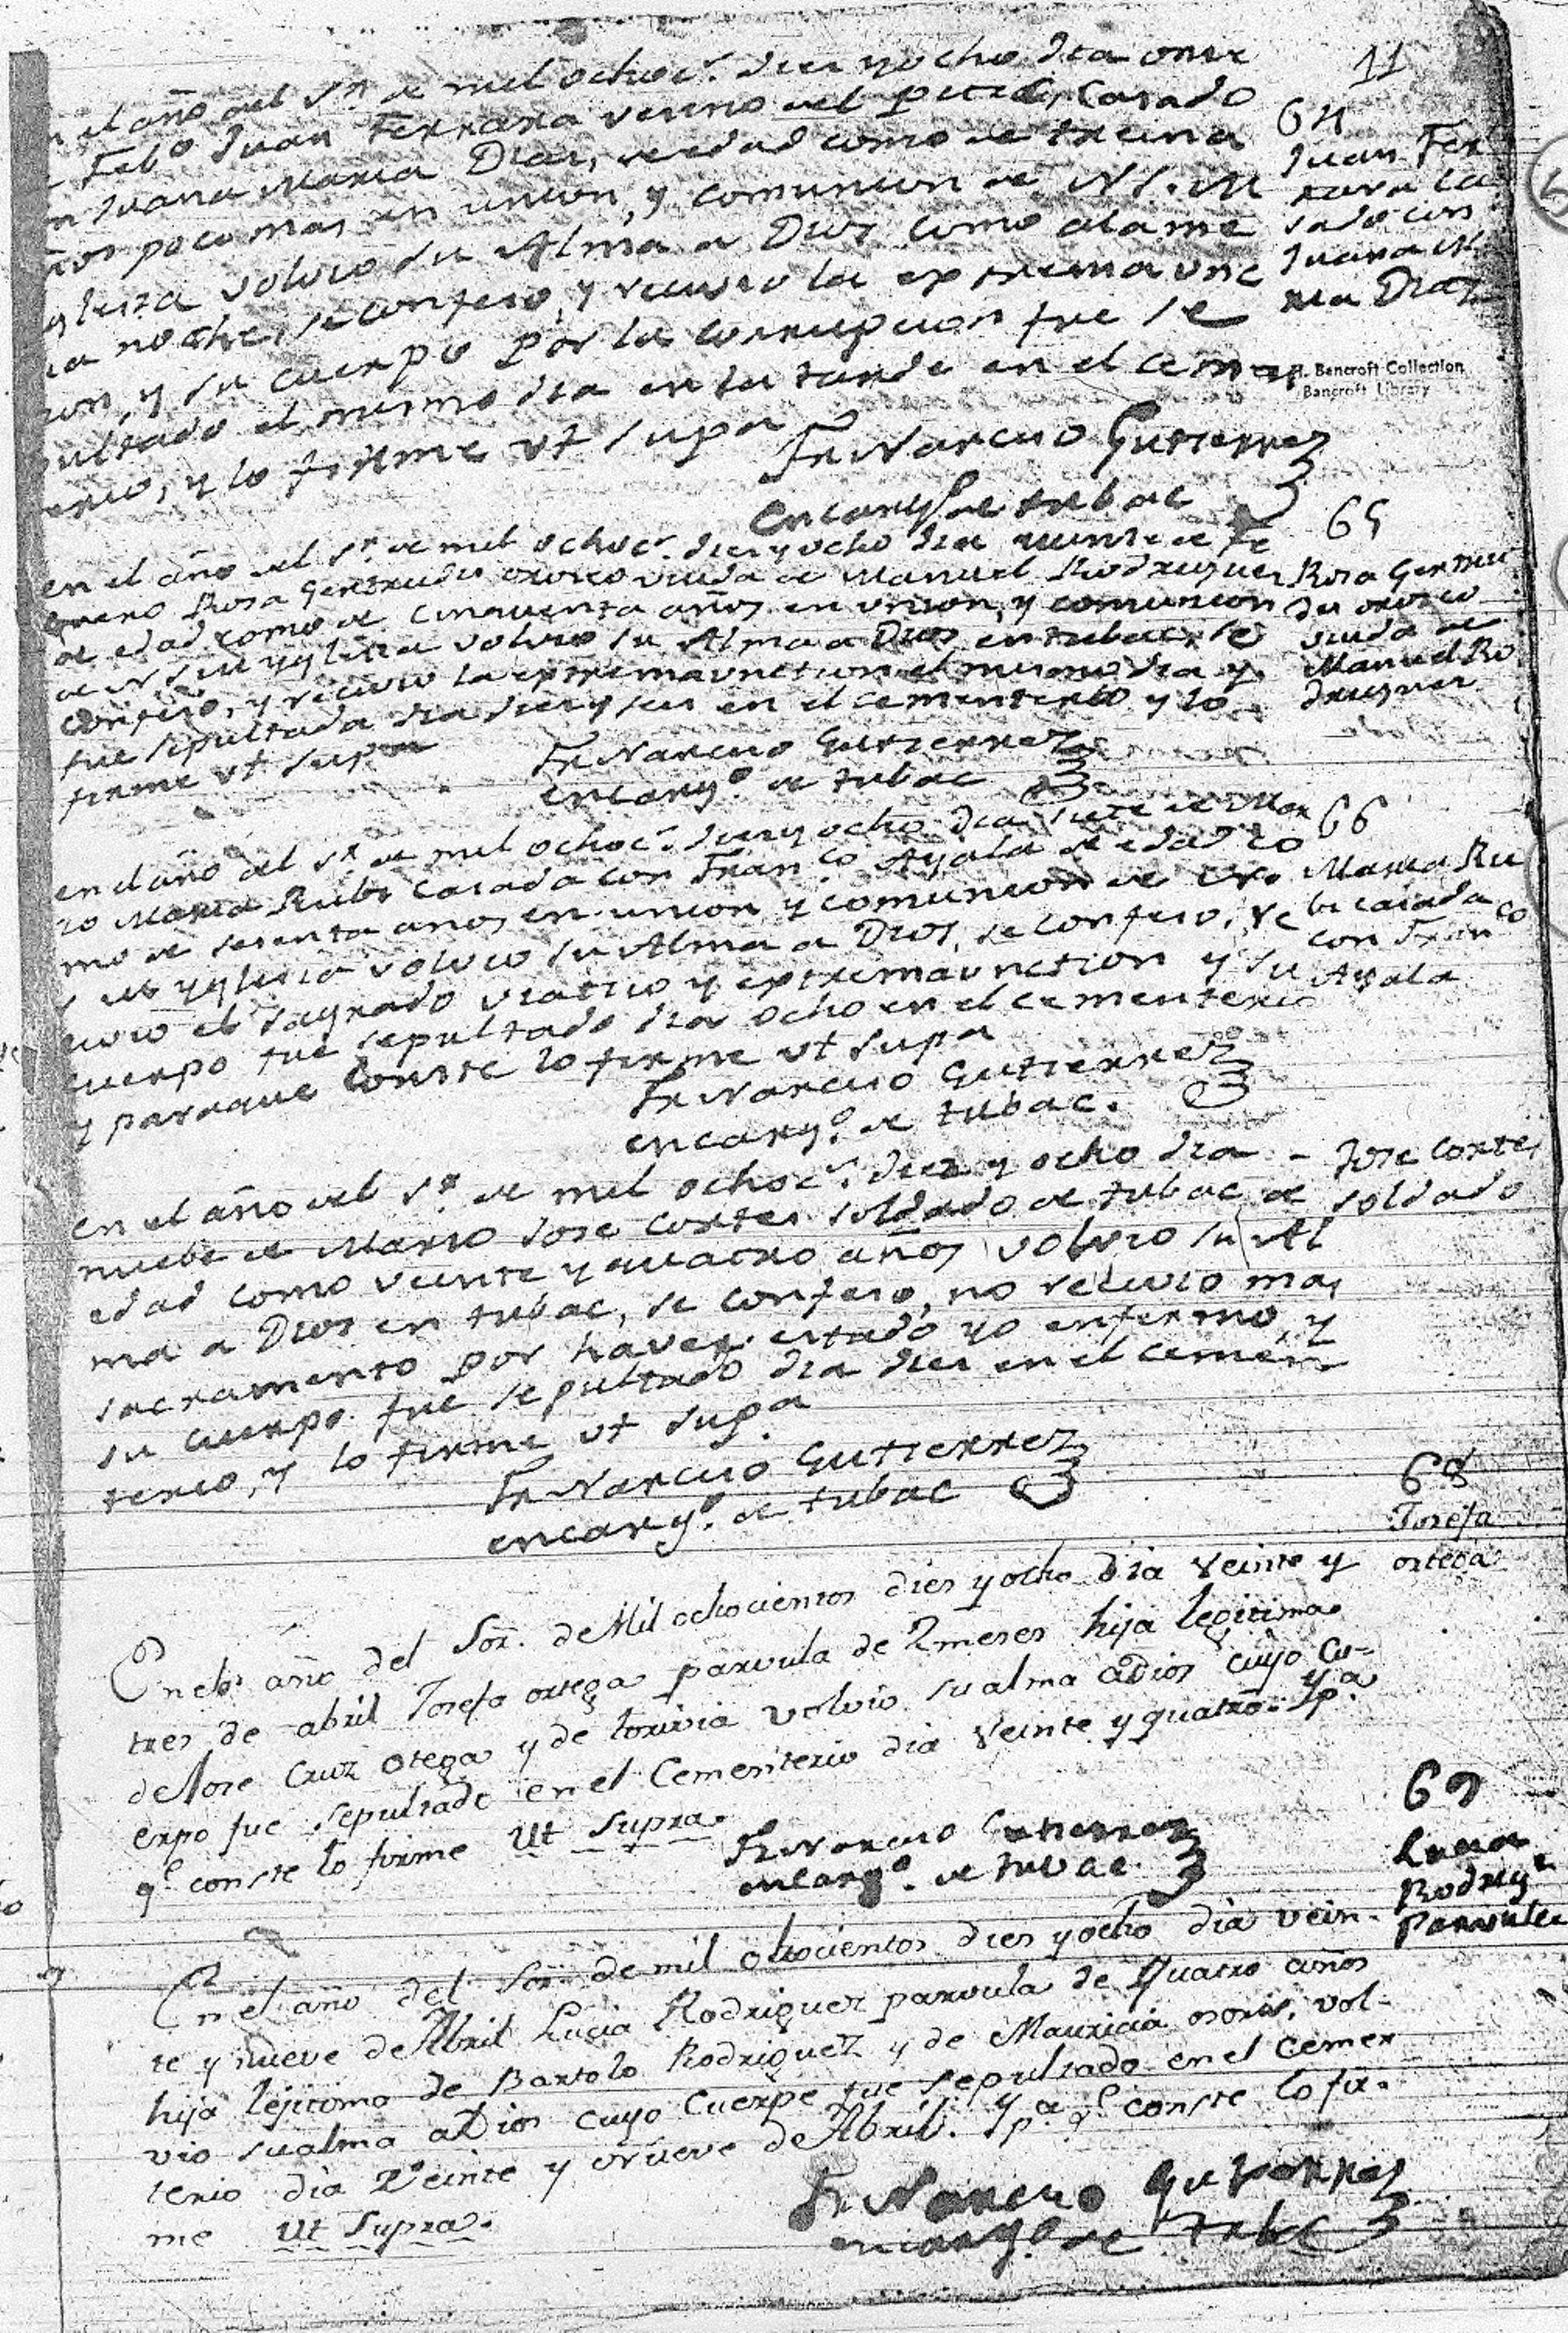 11
n el año del Sr. de mil ochoc.s dies y ocho dia onse
Feb.o Juan Ferrara vecino del Pitic, Casado
n Juana Maria Dias, de edad como de treinta
ños poco mas en union, y comunion de N S. M
yglesia volvio su Alma a Dios como a la me
ia noche, se confeso, y recivio la extrema unc
ion, y su cuerpo por la corrupcion fue se
pultado el mismo dia en la tarde en el cemen
erio, y lo firme ut supra
Fr Narciso Gutierrez
encarg.o de tubac
64
Juan Fer
rara ca
sado con
Juana M
ria Dias
H. Bancroft Collection
Bancroft Library
en el año del Sr. de mil ochoc.s dies y ocho dia quinse de Fe
brero Rosa Gertrudis orosco viuda de Manuel Rodriguez
de edad como de cinquenta años en union, y comunion
de N S M yglesia volvio su Alma a Dios en tubac, se
confeso, y recivio la extremaunction el mismo dia y
fue sepultada dia dies y seis en el cementerio y lo
firme ut supra
Fr Narciso Gutierrez
encarg.o de tubac
65
Rosa Gertru
dis orosco
viuda de
Manuel Ro
driguez
en el año del Sr. de mil ochoc.s dies y ocho dia siete de Mar
zo Maria Rubi casada con Fran.co Ayala de edad co
mo de sesenta años en union y comunion de
yglesia volvio su Alma a Dios, se confeso, re
civio el sagrado viatico y extremaunction y su
cuerpo fue sepultado dia ocho en el cementerio
y para que conste lo firme ut supra
Fr Narciso Gutierrez
encarg.o de tubac.
66
Maria Ru
bi casada
con Fran.co
Ayala
en el año del Sr. de mil ochoc.s diez y ocho dia
nuebe de Marso Jose cortes soldado de tubac de
edad como veinte y quatro años volvio su Al
ma a Dios en tubac, se confeso, no recivio mas
sacramento por haver estado yo enfermo, y
su cuerpo fue sepultado dia dies en el cemen
terio, y lo firme ut supra
Fr Narciso Gutierrez
encarg.o de tubac
Jose cortes
soldado
68
Josefa
ortega
En el año del Sor. de Mil ochocientos dies y ocho dia veinte y
tres de abril Josefa ortega parvula de 2 meses hija legitima
de Jose Cruz Otega y de volvio su alma a Dios cuyo cu-
erpo fue sepultado en el Cementerio dia veinte y quatro. Y p.a
q.e conste lo firme Ut Supra.
Fr Narciso Gutierrez
encarg.o de tubac.
69
Lucia
Rodrig.z
Parvula
En el año del Sor. de mil ochocientos dies y ocho dia vein-
te y nueve de Abril Lucia Rodriguez parvula de Quatro años
hija lejitima de Bartolo Rodriguez y de Mauricia osorio, vol-
vio su alma a Dios cuyo Cuerpo fue sepultado en el Cemen
terio dia Veinte y nueve de Abril. Y p.a q.e conste lo fir.
me Ut Supra.
Fr Narciso Gutierrez
encarg.o de Tubac